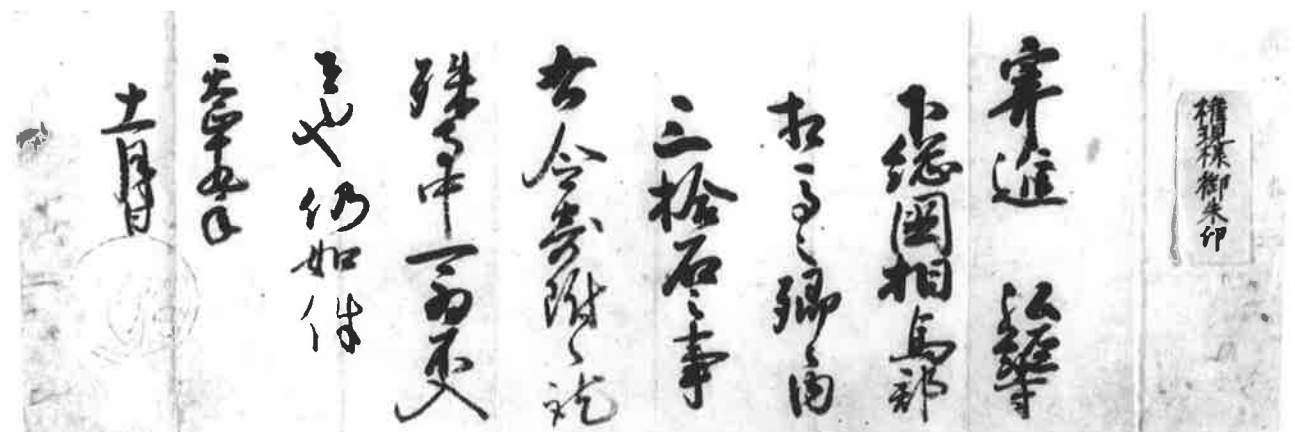 権現様御朱印
寄進 弘経寺
下総国相馬郡
相馬之郷内
三拾石之事
右令寄附之訖
殊寺中可為不入
者也仍如件
天正十九年
十一月日